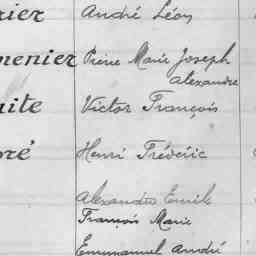 rier André Léon
menier Pierre Marie Joseph
Alexandre
uite Victor François
oré Henri Fréderic
Alexandre Emile
François Marie
Emmanuel André